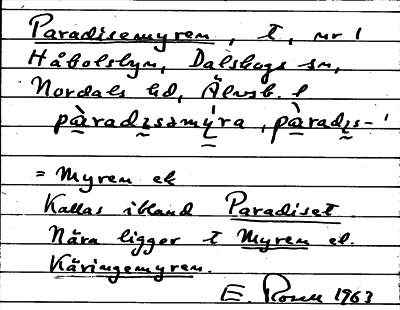 Paradisemyren, t, nr 1
Håbolsbyn, Dalskogs sn,
Nordals hd, Älvsb. l
pàradɪsəmýra, pàradɪs-'
= Myren el
Kallas ibland Paradiset.
Nära ligger t Myren el.
Käringemyren.
E. Rosell 1963